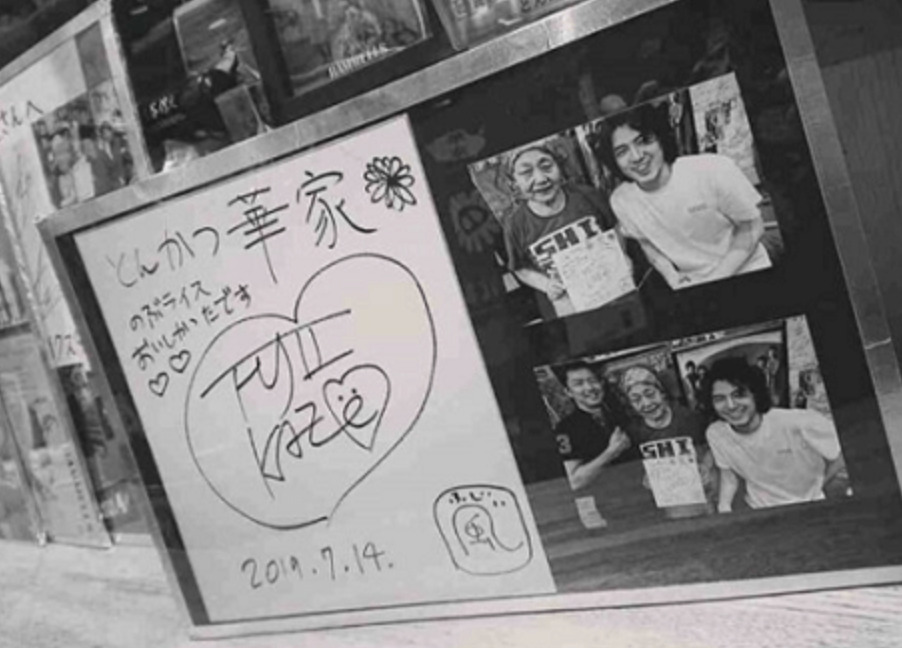 さんへ
とんかつ華家
のぶライス
おいしかったです
FUJII
KAZE
2019.7.14.
ふじい
風
SHI
SHI
3